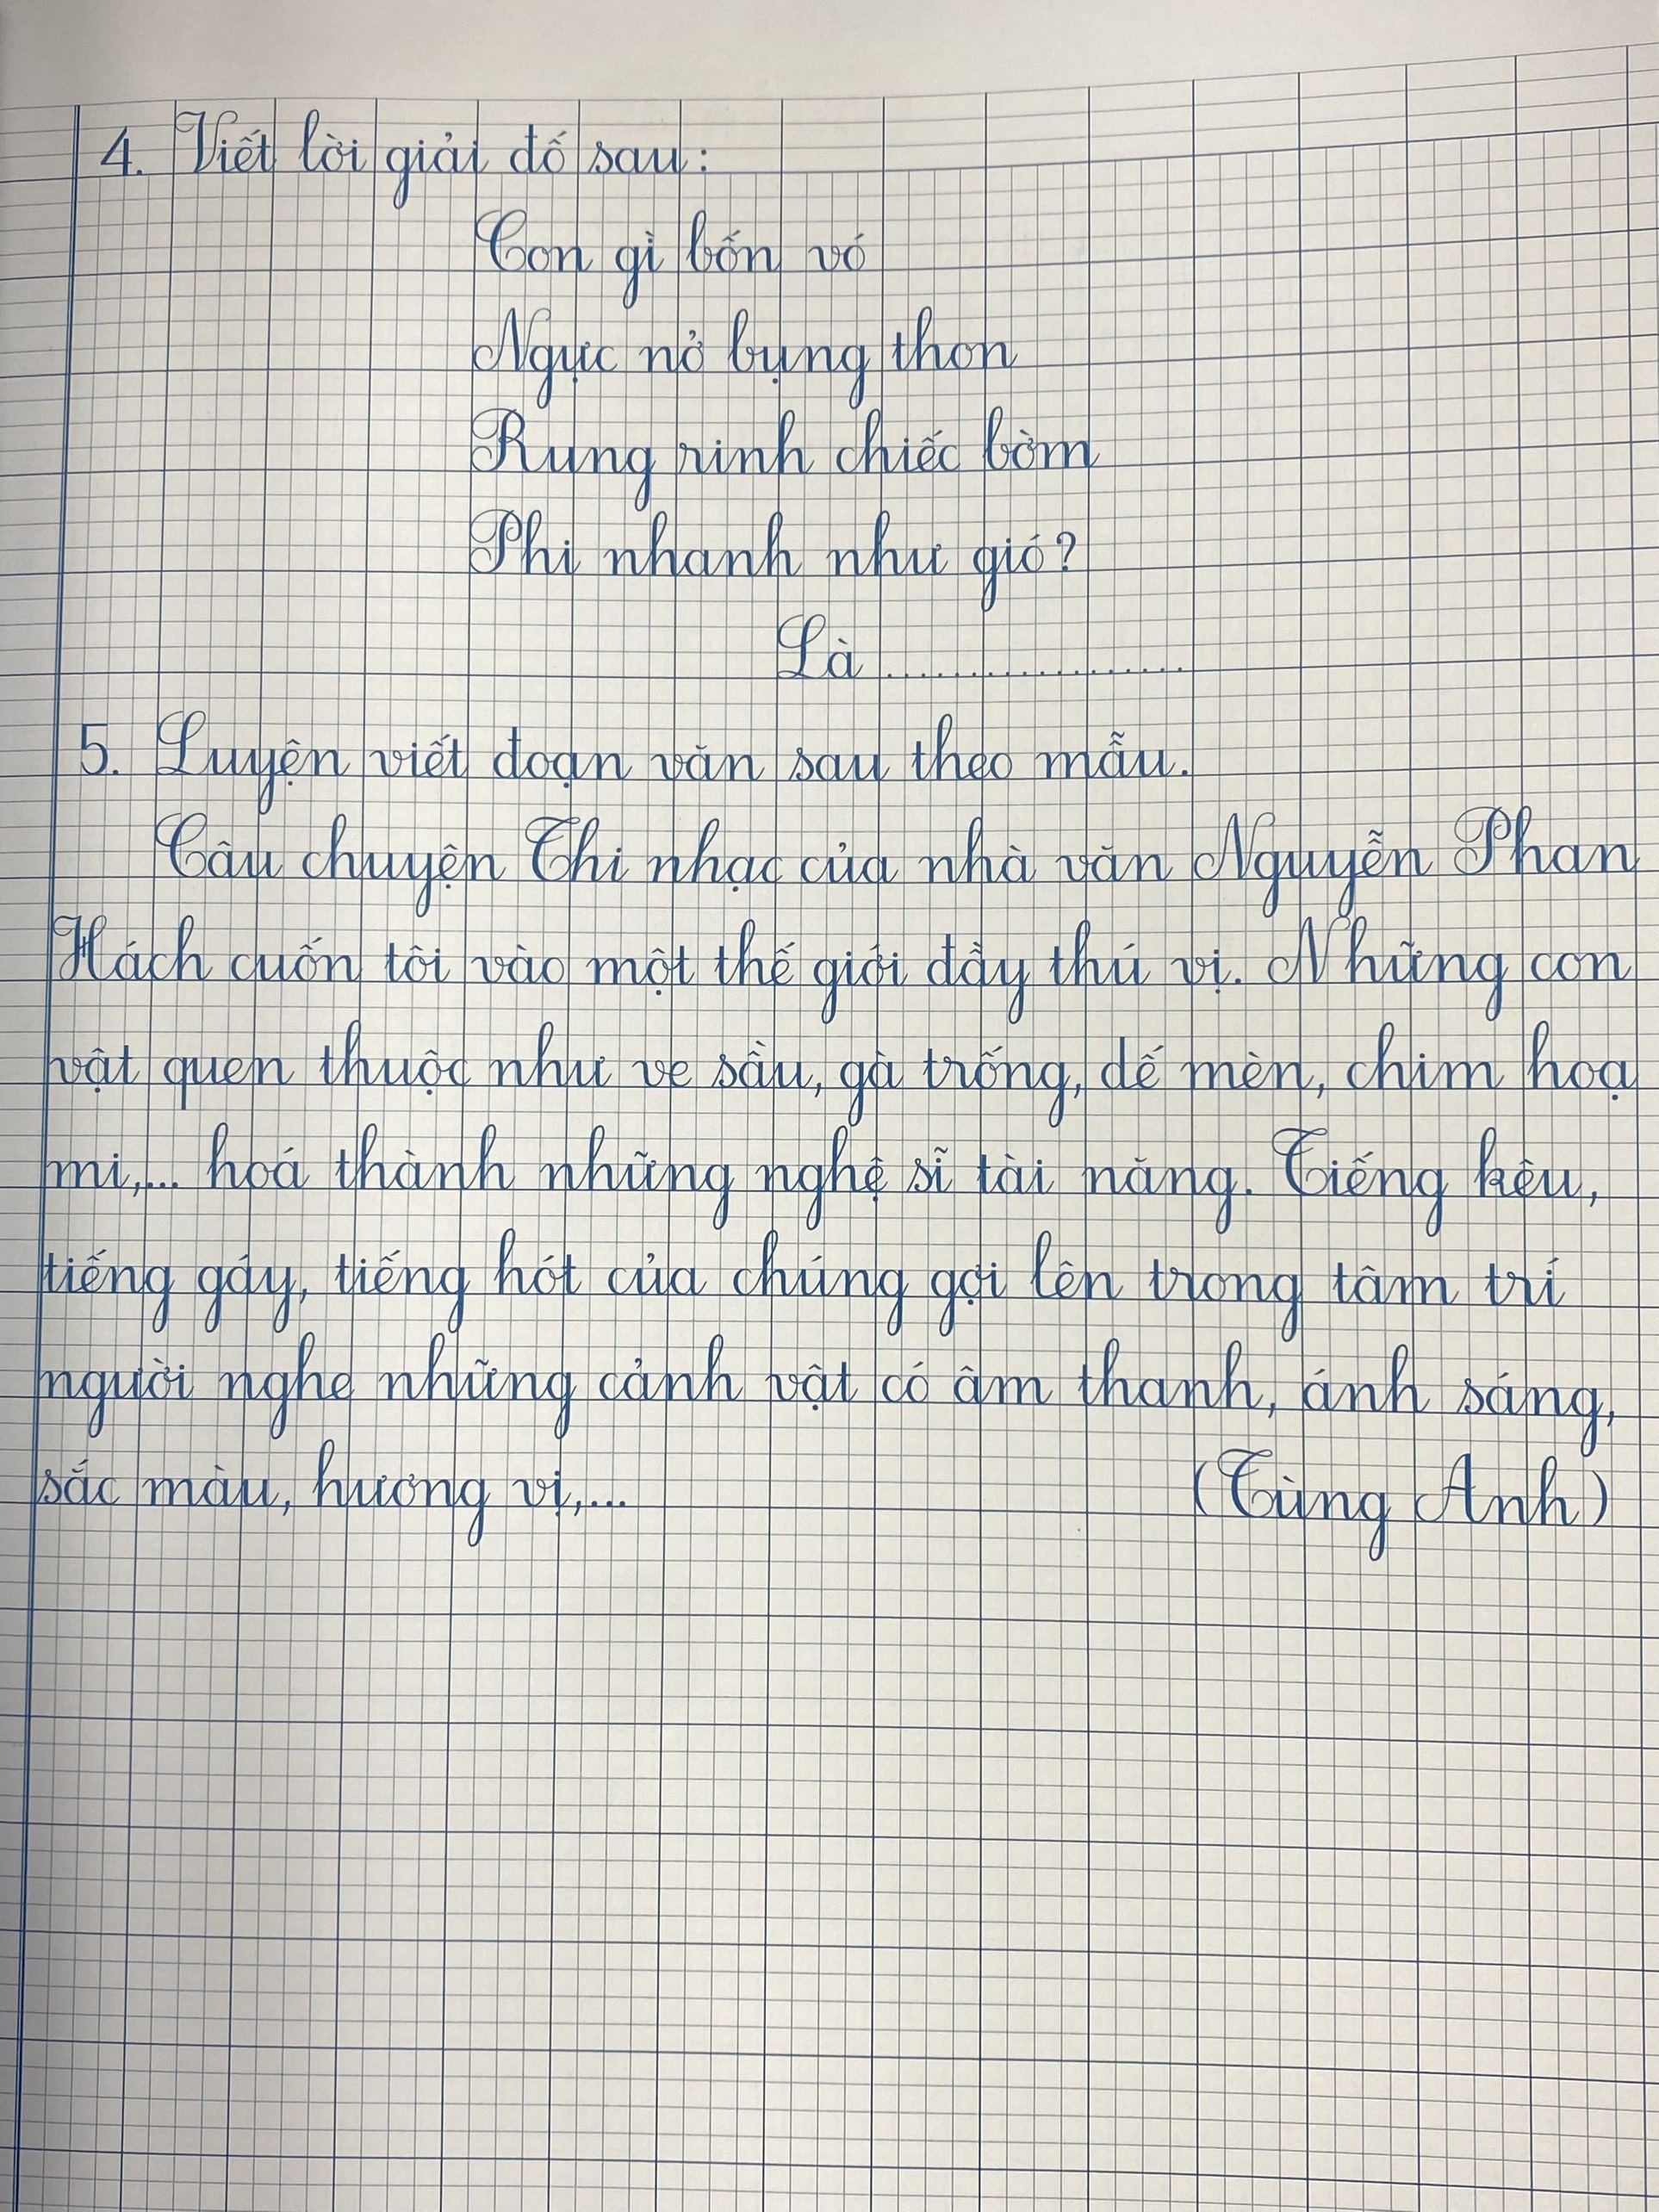 4. Viết lời giải đố sau:
Con gì bốn vó
Ngực nở bụng thon
Rung rinh chiếc bờm
Phi nhanh như gió?
Là..................
5. Luyện viết đoạn văn sau theo mẫu.
Câu chuyện Thi nhạc của nhà văn Nguyễn Phan
Hách cuốn tôi vào một thế giới đầy thú vị. Những con
vật quen thuộc như ve sầu, gà trống, dế mèn, chim hoạ
mi,... hoá thành những nghệ sĩ tài năng. Tiếng kêu,
tiếng gáy, tiếng hót của chúng gợi lên trong tâm trí
người nghe những cảnh vật có âm thanh, ánh sáng,
sắc màu, hương vị,...
(Tùng Anh)